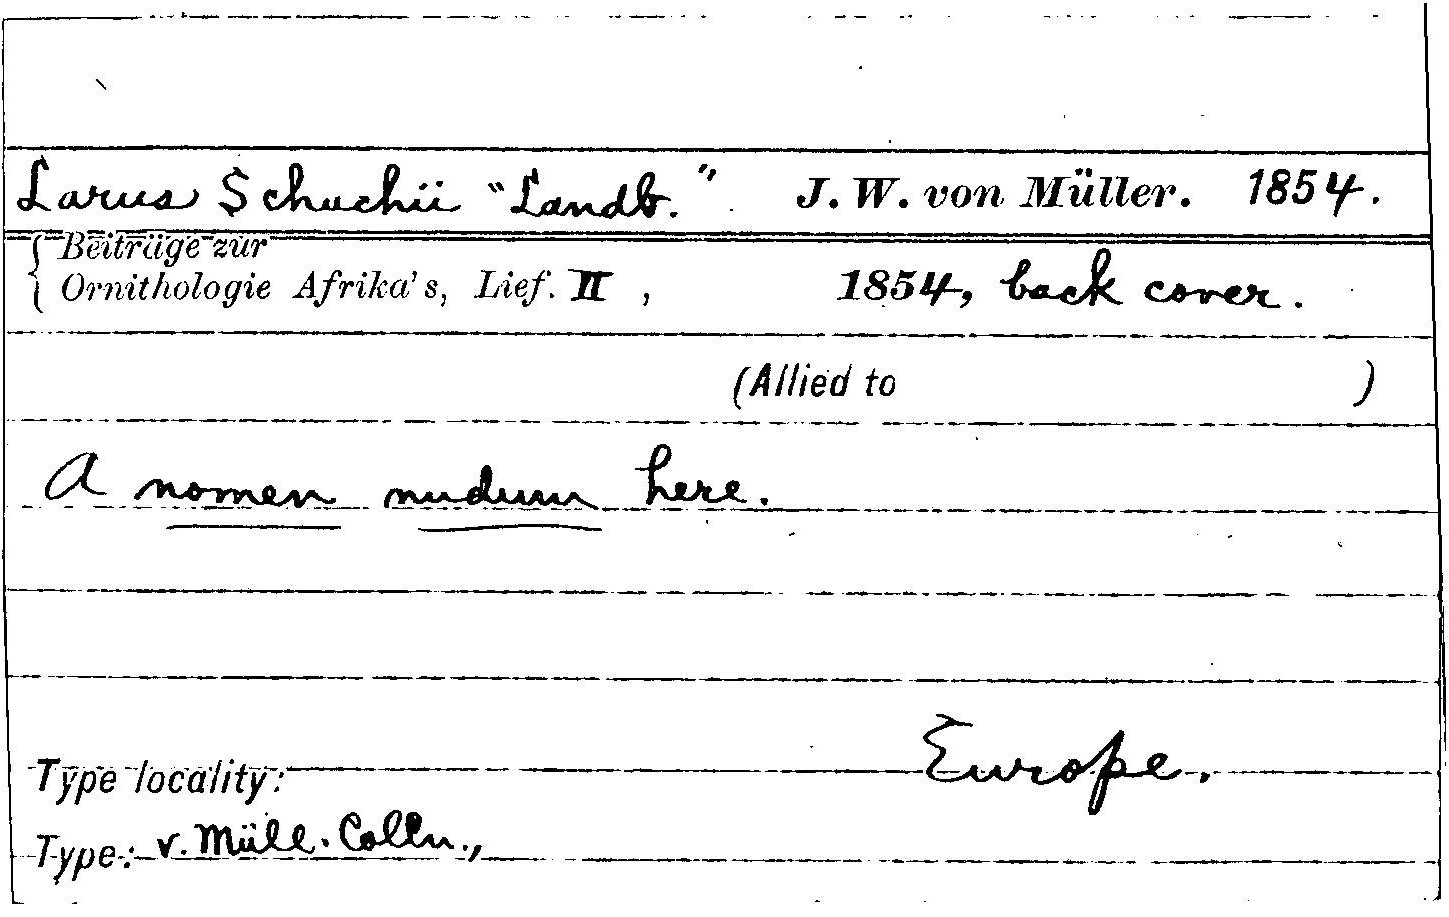 Larus Schuchii "Landb." J. W. von Müller. 1854.
Beiträge zur
Ornithologie Afrika's, Lief. II, 1854, back cover.
(Allied to )
A nomen nudum here.
Type locality: Europe.
Type: v. Müll. Colln.,